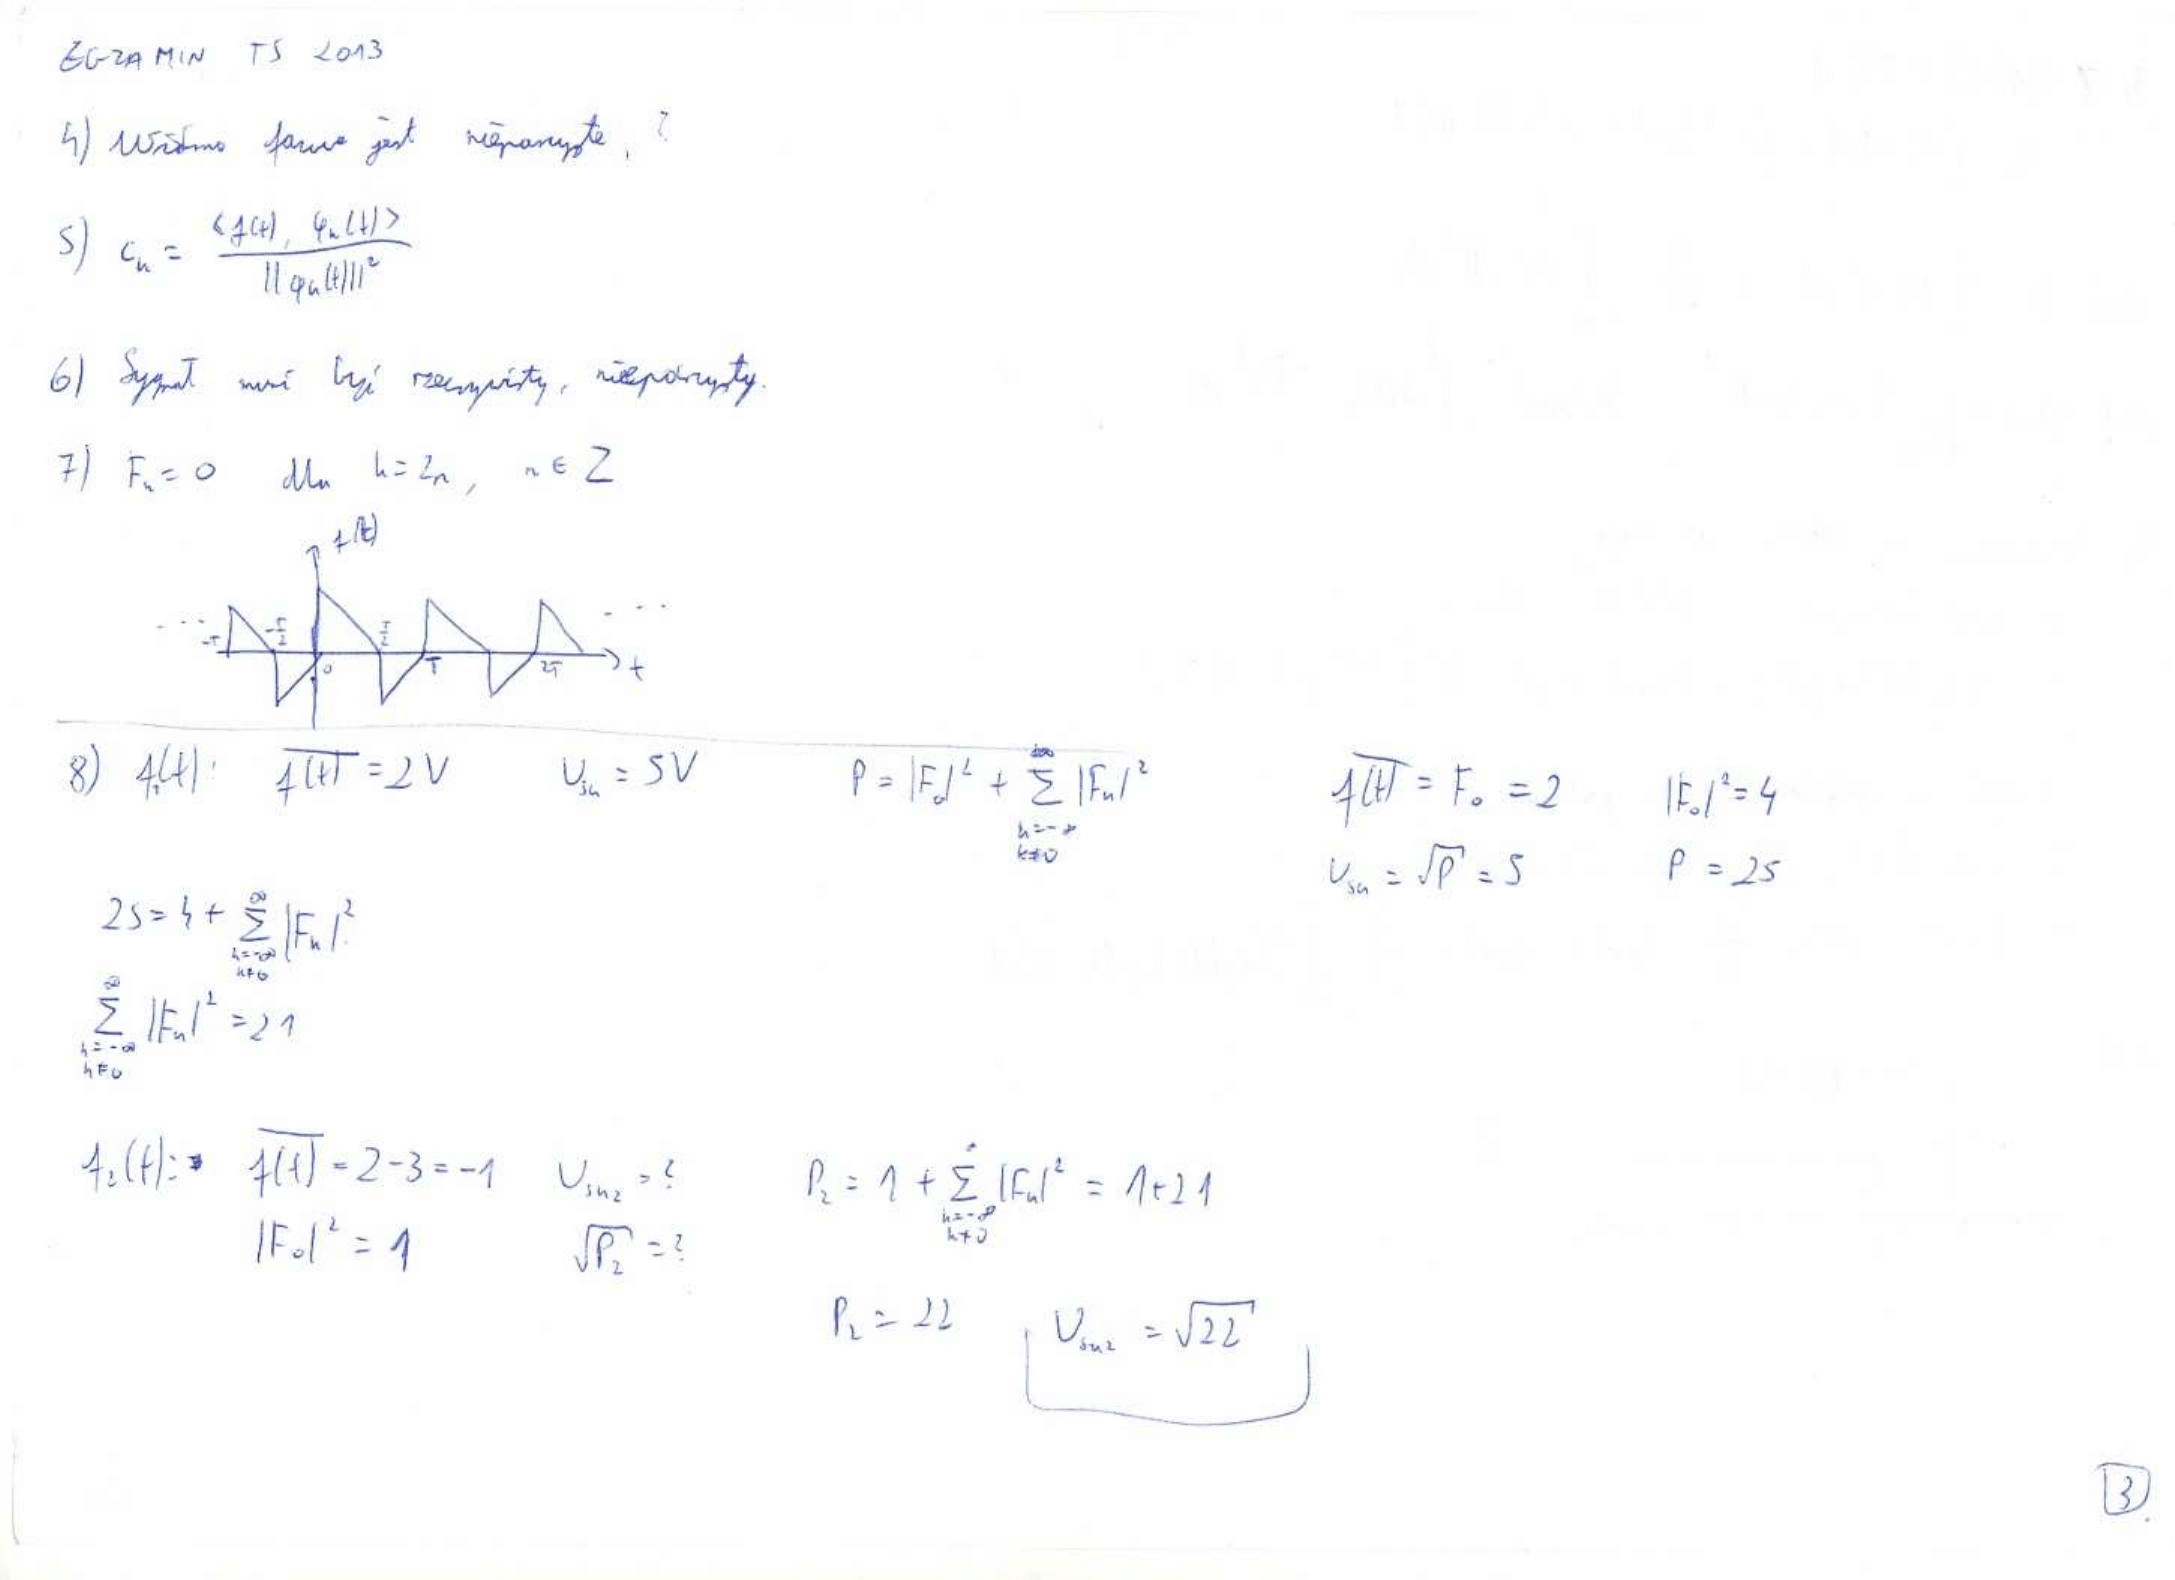 EGZAMIN TS 2013
4) Widmo fazowe jest nieparzyste, ?
5) cₙ = <f(t), φₙ(t)> / ||φₙ(t)||²
6) Sygnał musi być rzeczywisty, nieparzysty.
7) Fₙ = 0 dla k = 2n, n ∈ Z
f(t)
... -T -T/2 0 T/2 T 2T t ...
8) f₁(t): f(t) = 2V Uₛₖ = 5V P = |F₀|² + ∑ |Fₙ|² f(t) = F₀ = 2 |F₀|² = 4
k=-∞
k≠0
Uₛₖ = √P = 5 P = 25
∞
25 = 4 + ∑ |Fₙ|²
k=-∞
k≠0
∞
∑ |Fₙ|² = 21
k=-∞
k≠0
f₂(t): f(t) = 2-3 = -1 Uₛₖ₂ = ? P₂ = 1 + ∑ |Fₙ|² = 1+21
k=-∞
k≠0
|F₀|² = 1 √P₂ = ?
P₂ = 22 Uₛₖ₂ = √22
3